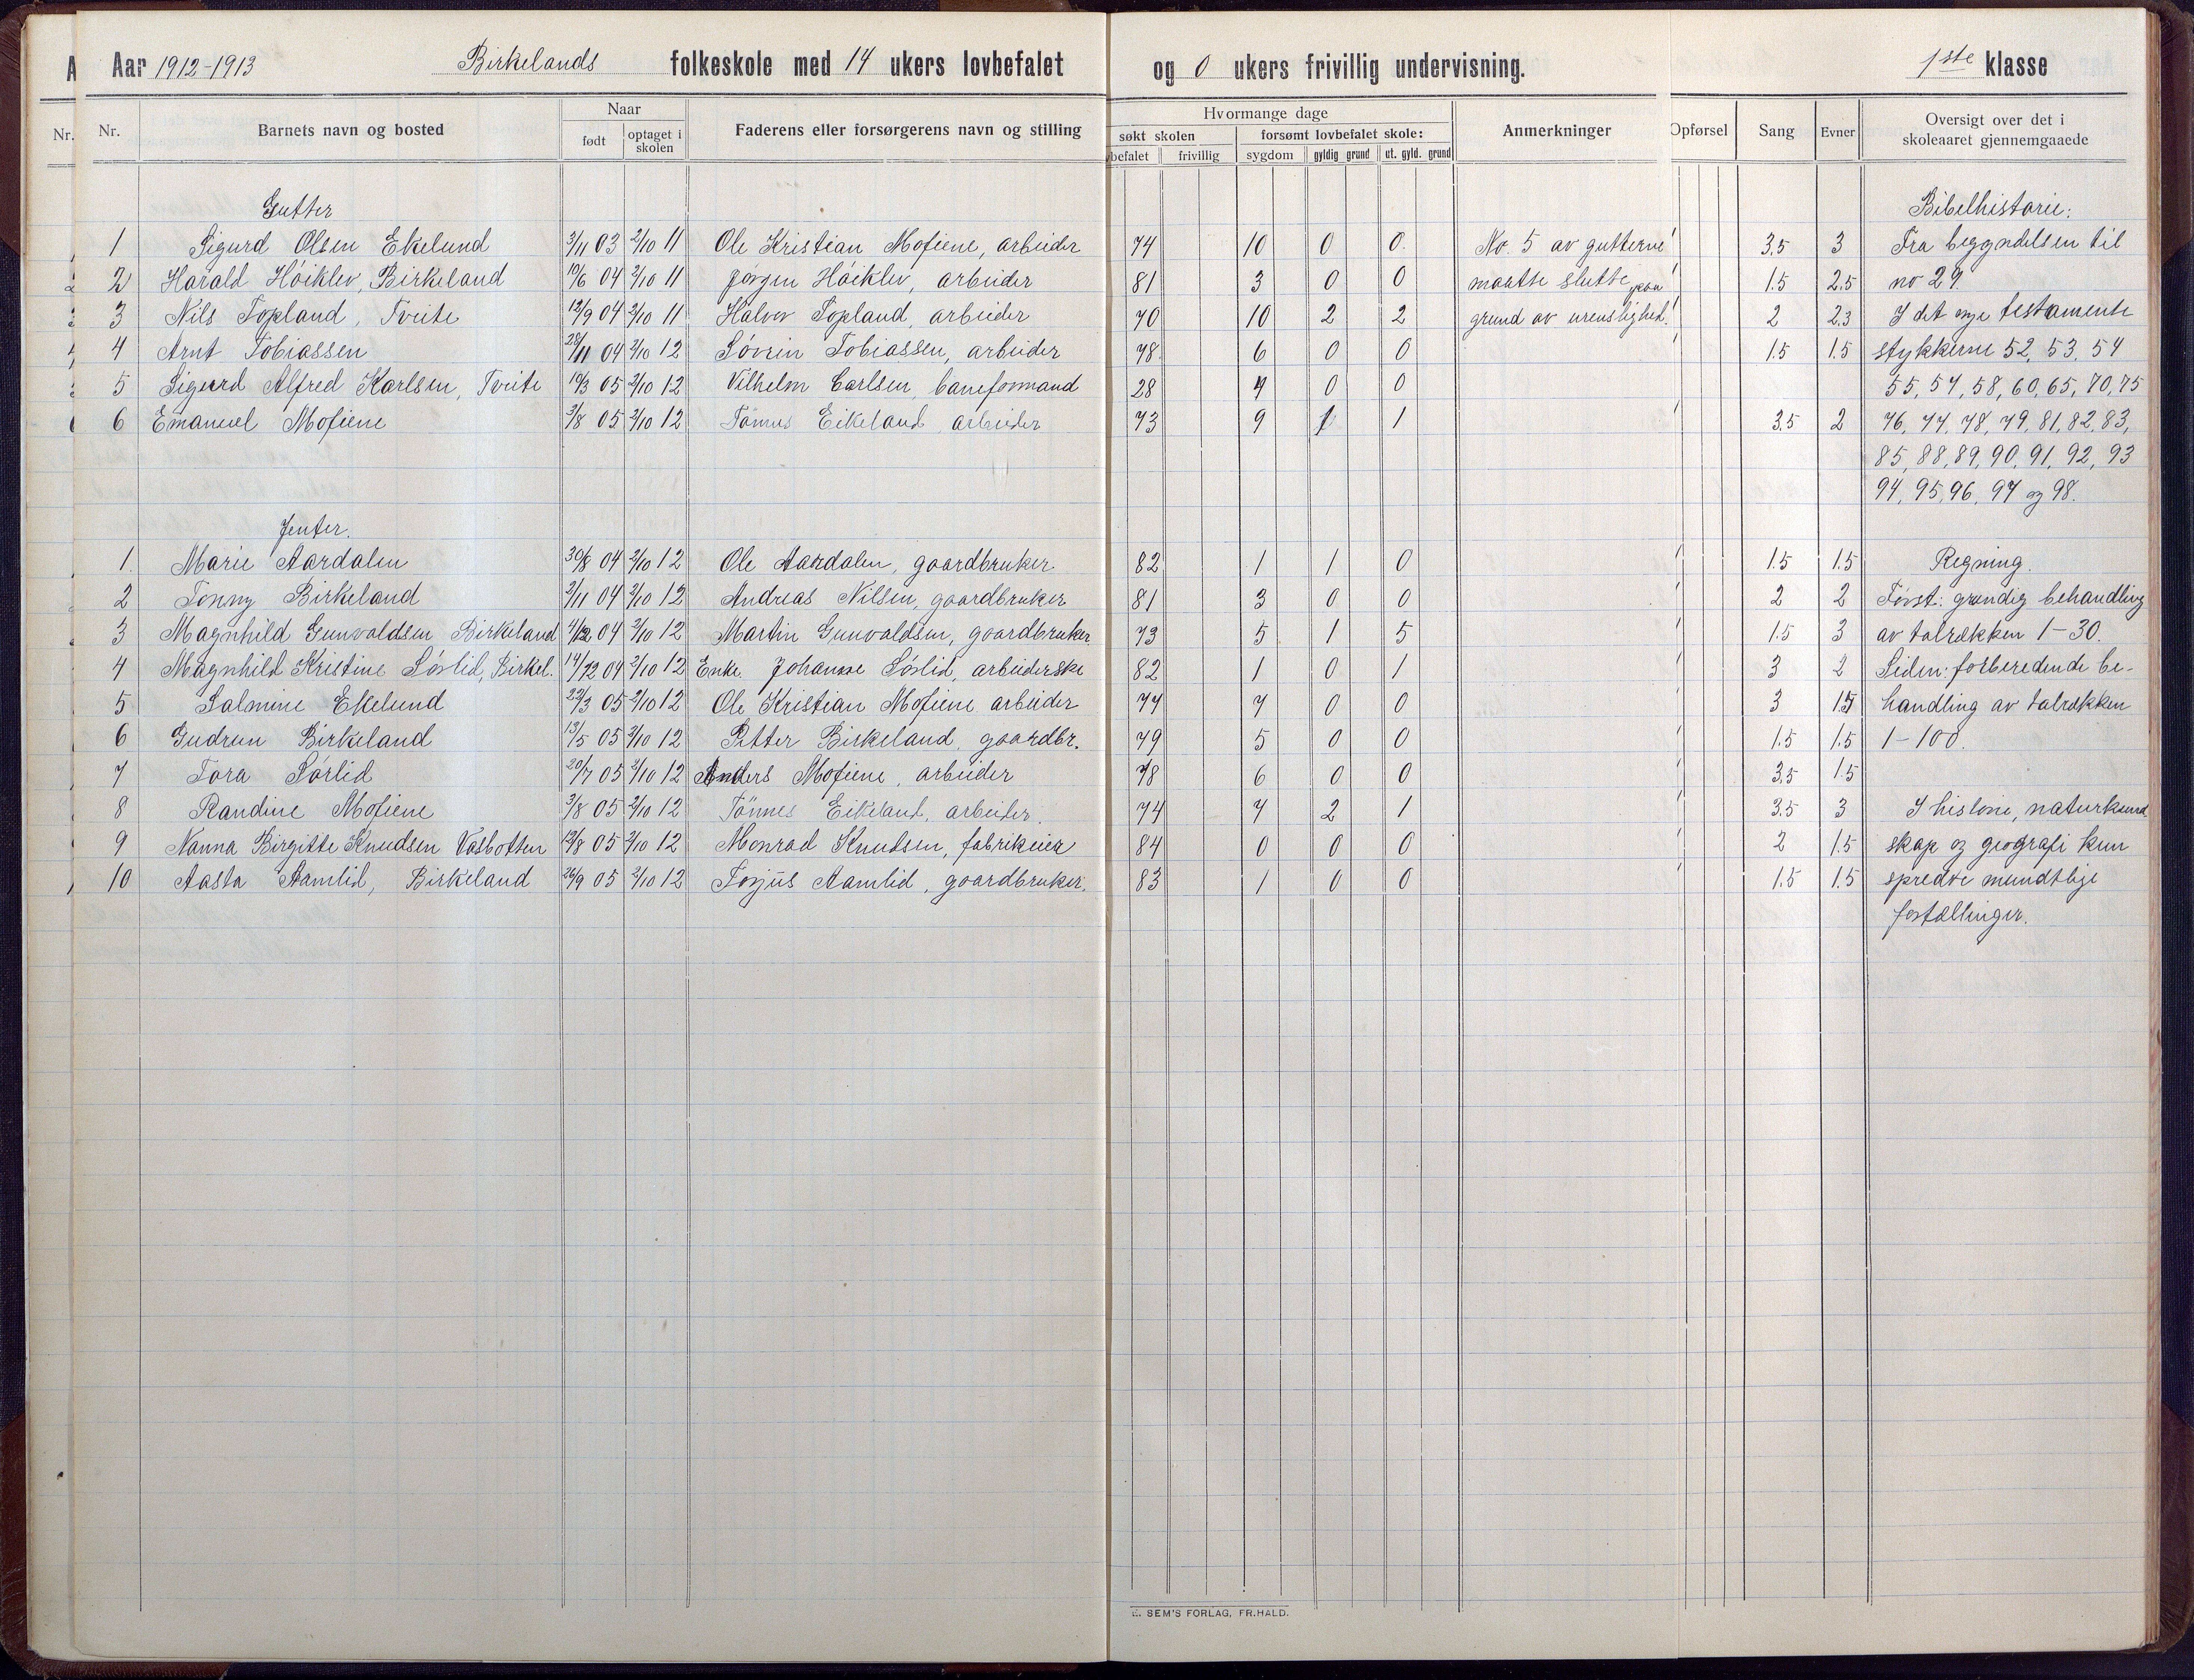 Aar 1912-1913 Birkelands folkeskole med 14 ukers lovbefalet og 0 ukers frivillig undervisning. 1ste klasse
Nr. Nr. Barnets navn og bosted Naar født optaget i skolen Faderens eller forsørgerens navn og stilling Hvormange dage søkt skolen frivillig forsømt lovbefalet skole: sygdom gyldig grund ut. gyld. grund Anmerkninger Opførsel Sang Evner Oversigt over det i skoleaaret gjennemgaaede
Gutter Bibelhistorie:
1 Sigurd Olsen Ekelund 3/11 03 2/10 11 Ole Kristian Mofiene, arbeider 74 10 0 0 No. 5 av gutterne 3.5 3 Fra begyndelsen til
2 Harald Høiklev, Birkeland 10/6 04 2/10 11 Jørgen Høiklev, arbeider 81 3 0 0 maatte slutte paa 1.5 2.5 no 29.
3 Nils Topland, Tveite 12/9 04 2/10 11 Halvor Topland, arbeider 70 10 2 2 grund av urenslighed. 2 2.3 I det nye testamente
4 Arnt Tobiassen 28/11 04 2/10 12 Søvrin Tobiassen, arbeider 78 6 0 0 1.5 1.5 stykkerne 52, 53, 54
5 Sigurd Alfred Karlsen, Tveite 10/3 05 2/10 12 Vilhelm Carlsen, baneformand 28 7 0 0 55, 57, 58, 60, 65, 70, 75
6 Emanuel Mofiene 3/8 05 2/10 12 Tønnes Eikeland, arbeider 73 9 1 1 3.5 2 76, 77, 78, 79, 81, 82, 83,
85, 88, 89, 90, 91, 92, 93
94, 95, 96, 97 og 98.
Jenter.
1. Marie Aardalen 30/8 04 2/10 12 Ole Aardalen, gaardbruker 82 1 1 0 1.5 1.5 Regning.
2 Tonny Birkeland 3/11 04 2/10 12 Andreas Nilsen, gaardbruker 81 3 0 0 2 2 Først: grundig behandling
3 Magnhild Gunvaldsen Birkeland 4/12 04 2/10 12 Martin Gunvaldsen, gaardbruker. 73 5 1 5 1.5 3 av talrækken 1-30.
4 Magnhild Kristine Sørlid, Birkel. 14/12 04 2/10 12 Enke Johanne Sørlid, arbeiderske 82 1 0 1 3 2 Siden: forberedende be-
5 Salmine Ekelund 22/3 05 2/10 12 Ole Kristian Mofiene arbeider 77 7 0 0 3 1.5 handling av talrækken
6 Gudrun Birkeland 13/5 05 2/10 12 Petter Birkeland, gaardbr. 79 5 0 0 1.5 1.5 1-100.
7 Tora Sørlid 20/7 05 2/10 12 Anders Mofiene, arbeider 78 6 0 0 3.5 1.5
8 Randine Mofiene 3/8 05 2/10 12 Tønnes Eikeland, arbeider. 74 7 2 1 3.5 3 I historie, naturkund
9 Nanna Birgitte Knudsen Vasbotten 13/8 05 2/10 12 Monrad Knudsen, fabrikeier 84 0 0 0 2 1.5 skap og geografi kun
10 Aasta Aamlid, Birkeland 26/9 05 2/10 12 Torjus Aamlid, gaardbruker. 83 1 0 0 1.5 1.5 spredte mundtlige
fortællinger.
E. SEM'S FORLAG, FR.HALD.